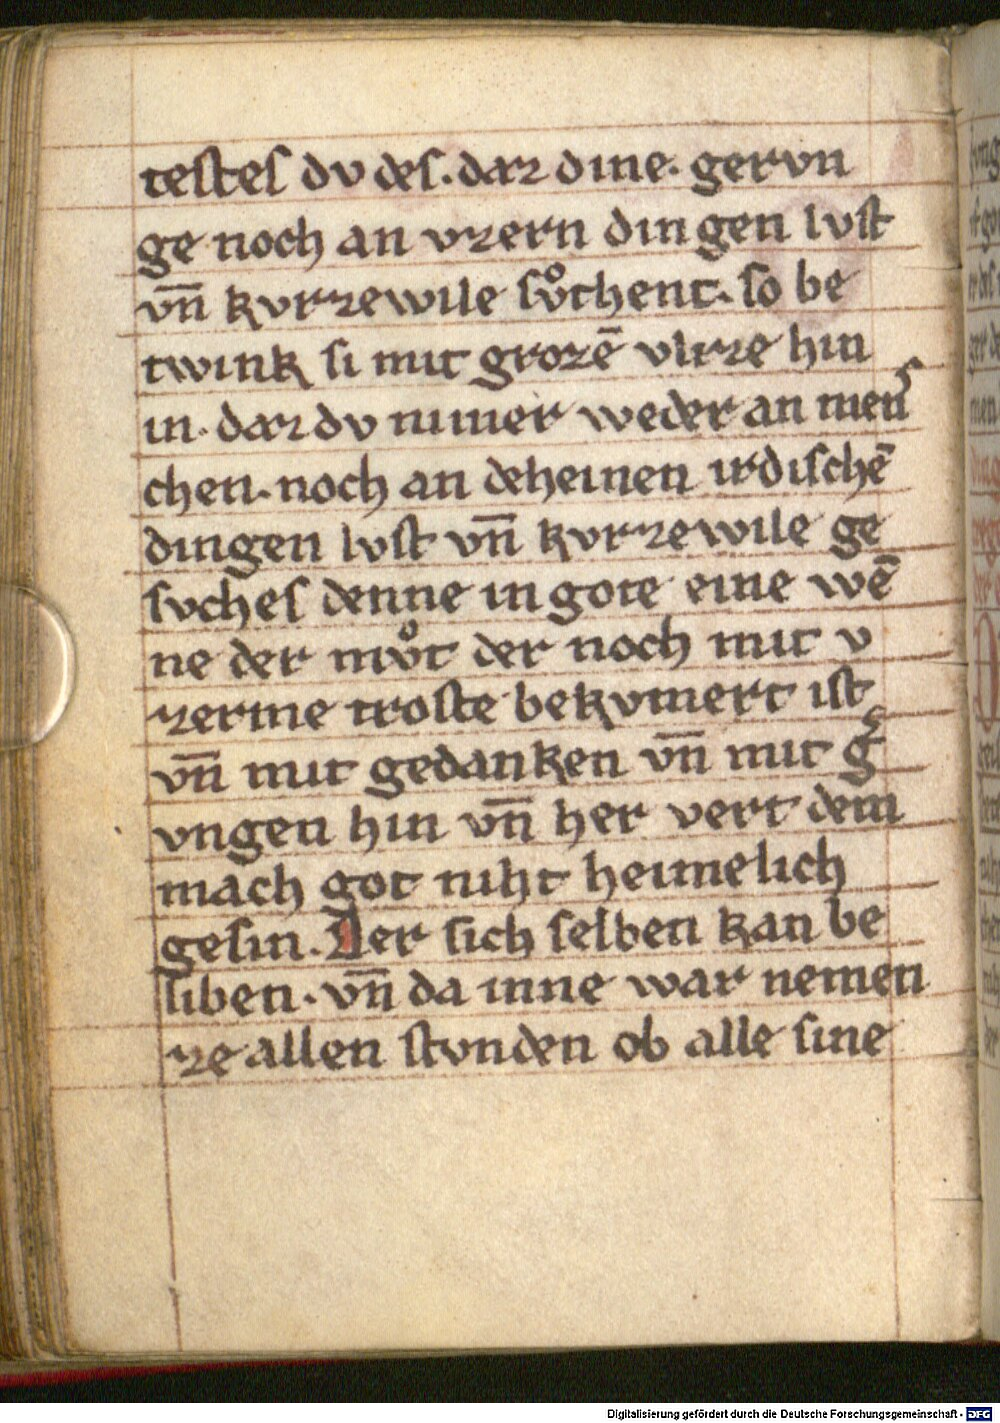 testes dv des. daz dine. gervn
ge noch an vzern dingen lvst
vn̄ kvrzewile svͦchent. so be
twink si mit grozē vlize hin
in. daz dv nimer weder an menˢ
chen. noch an deheinen irdischē
dingen lvst vn̄ kvrzewile ge
svches denne in gote eine wē
ne der mvͦt der noch mit v
zerme troste bekvmert ist
vn̄ mit gedanken vn̄ mit gͬ
vngen hin vn̄ her vert dem
mach got niht heimelich
gesin. Der sich selben kan be
siben. vn̄ da inne war nemen
ze allen stvnden ob alle sine
Digitalisierung gefördert durch die Deutsche Forschungsgemeinschaft - DFG